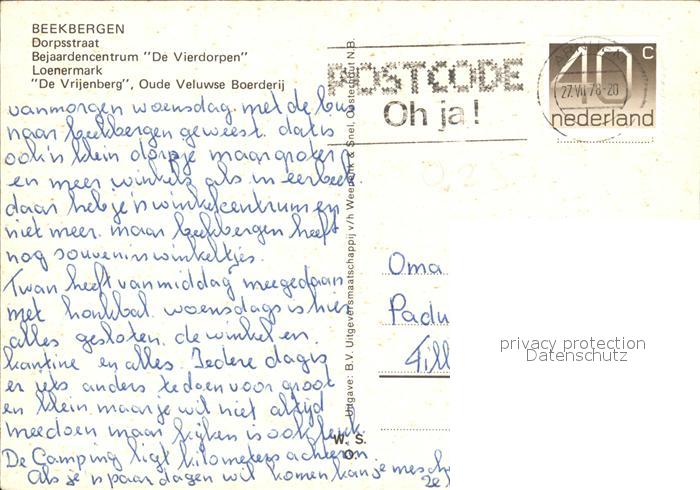 BEEKBERGEN
Dorpsstraat
Bejaardencentrum "De Vierdorpen"
Loenermark
"De Vrijenberg", Oude Veluwse Boerderij
vanmorgen woensdag met de bus
naar beekbergen geweest. dat is
ook 'n klein dorpje maar groter
en meer winkels als in eerbeek.
daar heb je 'n winkelcentrum en
niet meer. maar beekbergen heeft
nog souvenirswinkeltjes.
Twan heeft vanmiddag meegedaan
met honkbal. woensdags is hier
alles gesloten. de winkel en
kantine en alles. Iedere dag is
er iets anders te doen voor groot
en klein maar je wil niet altijd
meedoen maar kijken is ook leuk.
De Camping ligt kilometers achteren.
Als je 'n paar dagen wil komen kan je
Uitgave: B.V. Uitgeversmaatschappij v/h Weenink & Snel, Oosterhout N.B.
W. S.
O.
POSTCODE
Oh ja!
27.VII.78-20
40 c
nederland
Oma
Padu
Till
privacy protection
Datenschutz